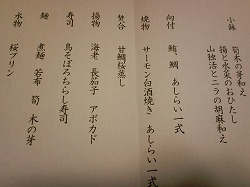 小鉢 筍木の芽和え
揚と水菜のおひたし
山独活とニラの胡麻和え
向付 鮪 鯛 あしらい一式
焼物 サーモン白酒焼き あしらい一式
焚合 甘鯛桜蒸し
揚物 海老 長茄子 アボカド
寿司 鳥そぼろちらし寿司
麺 煮麺 若布 筍 木の芽
水物 桜プリン